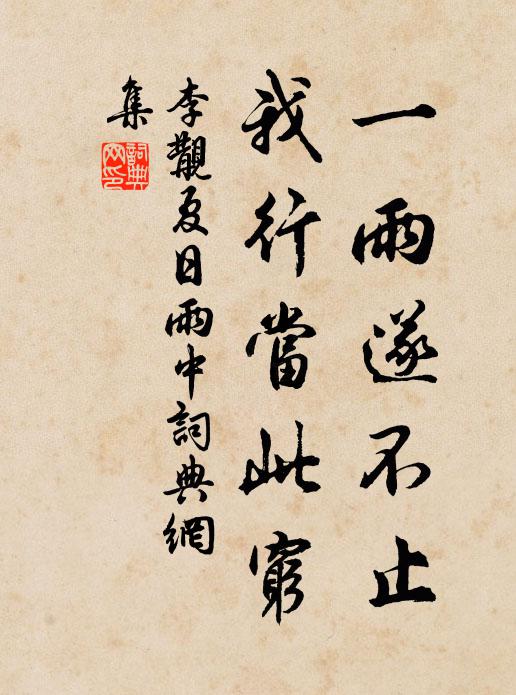 一雨遂不止
我行當此窮
李觀夏日雨中詞典網
集
詞典網印